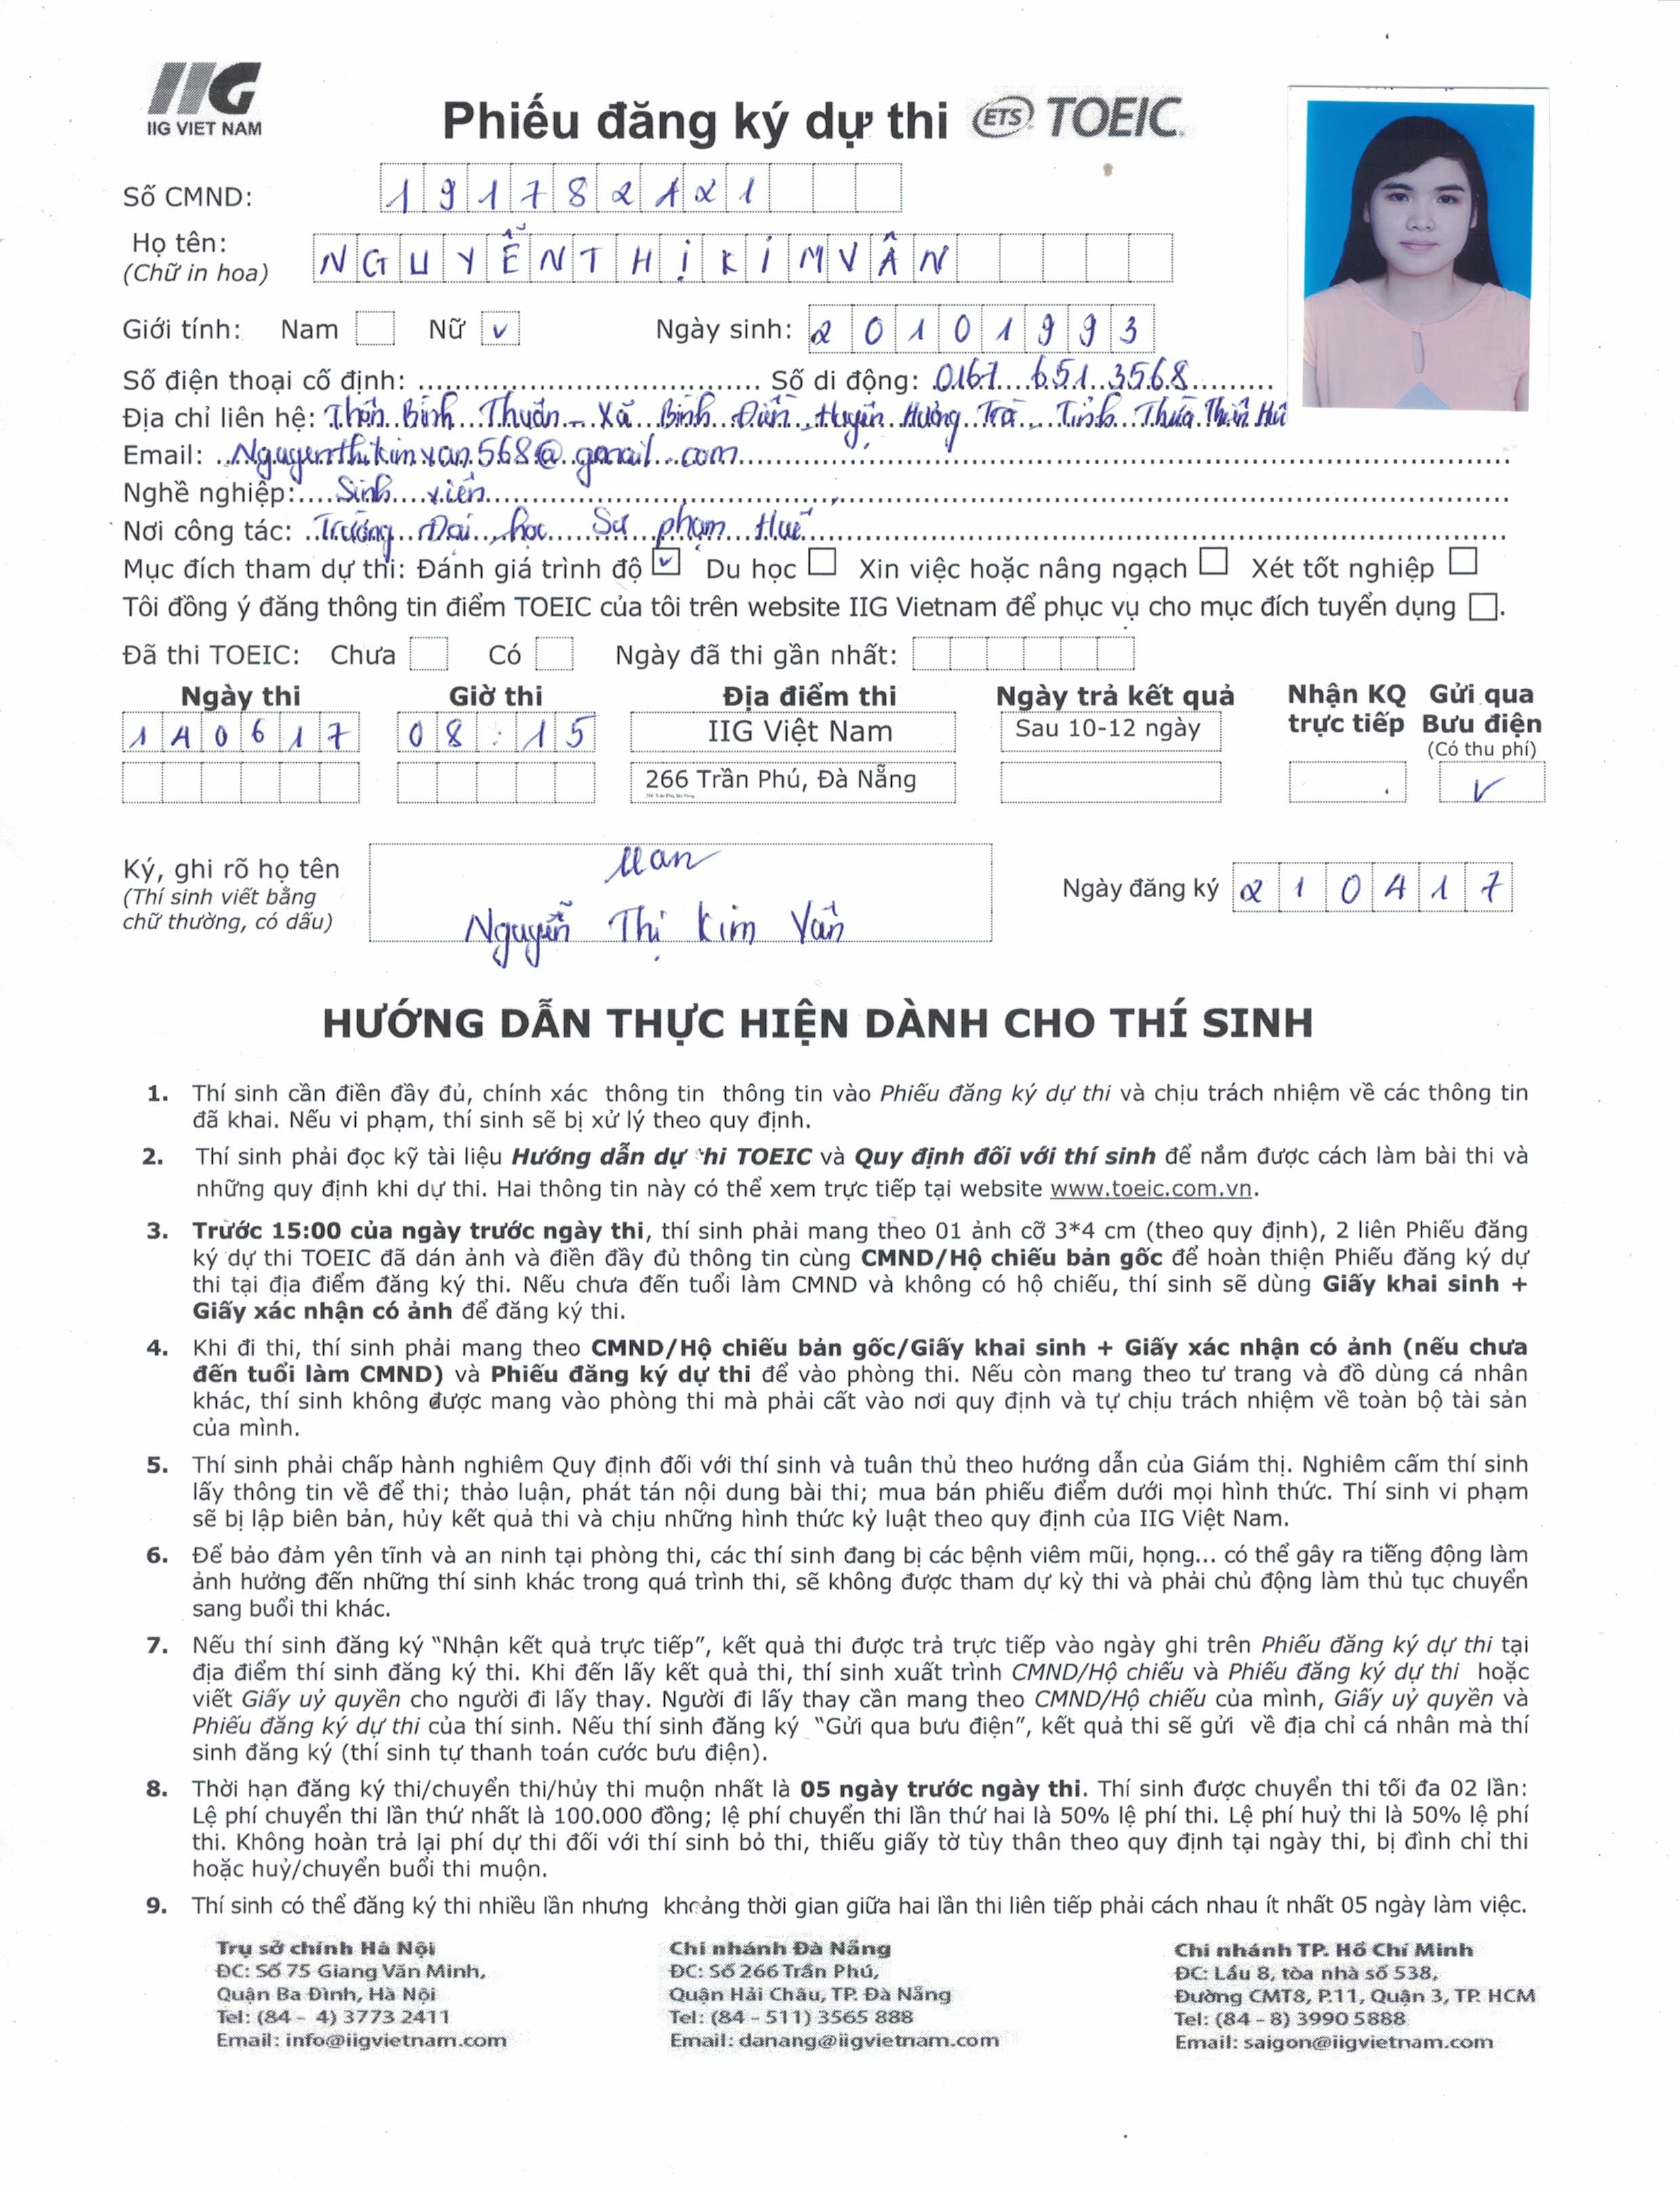 IIG
IIG VIET NAM
Phiếu đăng ký dự thi ETS TOEIC
Số CMND: 191782121
Họ tên: NGUYỄN THỊ KIM VÂN
(Chữ in hoa)
Giới tính: Nam Nữ v Ngày sinh: 20101993
Số điện thoại cố định: Số di động: 0167 651 3568
Địa chỉ liên hệ: Thôn Bình Thuận - Xã Bình Điền - Huyện Hương Trà - Tỉnh Thừa Thiên Huế
Email: Nguyenthikimvan568@gmail.com
Nghề nghiệp: Sinh viên
Nơi công tác: Trường Đại học Sư phạm Huế
Mục đích tham dự thi: Đánh giá trình độ v Du học Xin việc hoặc nâng ngạch Xét tốt nghiệp
Tôi đồng ý đăng thông tin điểm TOEIC của tôi trên website IIG Vietnam để phục vụ cho mục đích tuyển dụng .
Đã thi TOEIC: Chưa Có Ngày đã thi gần nhất:
Ngày thi Giờ thi Địa điểm thi Ngày trả kết quả Nhận KQ trực tiếp Gửi qua Bưu điện
(Có thu phí)
140617 08:15 IIG Việt Nam Sau 10-12 ngày
266 Trần Phú, Đà Nẵng v
266 Trần Phú, Đà Nẵng
Ký, ghi rõ họ tên
(Thí sinh viết bằng
chữ thường, có dấu)
Nguyễn Thị Kim Vân
Ngày đăng ký 210417
HƯỚNG DẪN THỰC HIỆN DÀNH CHO THÍ SINH
1. Thí sinh cần điền đầy đủ, chính xác thông tin thông tin vào Phiếu đăng ký dự thi và chịu trách nhiệm về các thông tin
đã khai. Nếu vi phạm, thí sinh sẽ bị xử lý theo quy định.
2. Thí sinh phải đọc kỹ tài liệu Hướng dẫn dự thi TOEIC và Quy định đối với thí sinh để nắm được cách làm bài thi và
những quy định khi dự thi. Hai thông tin này có thể xem trực tiếp tại website www.toeic.com.vn.
3. Trước 15:00 của ngày trước ngày thi, thí sinh phải mang theo 01 ảnh cỡ 3*4 cm (theo quy định), 2 liên Phiếu đăng
ký dự thi TOEIC đã dán ảnh và điền đầy đủ thông tin cùng CMND/Hộ chiếu bản gốc để hoàn thiện Phiếu đăng ký dự
thi tại địa điểm đăng ký thi. Nếu chưa đến tuổi làm CMND và không có hộ chiếu, thí sinh sẽ dùng Giấy khai sinh +
Giấy xác nhận có ảnh để đăng ký thi.
4. Khi đi thi, thí sinh phải mang theo CMND/Hộ chiếu bản gốc/Giấy khai sinh + Giấy xác nhận có ảnh (nếu chưa
đến tuổi làm CMND) và Phiếu đăng ký dự thi để vào phòng thi. Nếu còn mang theo tư trang và đồ dùng cá nhân
khác, thí sinh không được mang vào phòng thi mà phải cất vào nơi quy định và tự chịu trách nhiệm về toàn bộ tài sản
của mình.
5. Thí sinh phải chấp hành nghiêm Quy định đối với thí sinh và tuân thủ theo hướng dẫn của Giám thị. Nghiêm cấm thí sinh
lấy thông tin về đề thi; thảo luận, phát tán nội dung bài thi; mua bán phiếu điểm dưới mọi hình thức. Thí sinh vi phạm
sẽ bị lập biên bản, hủy kết quả thi và chịu những hình thức kỷ luật theo quy định của IIG Việt Nam.
6. Để bảo đảm yên tĩnh và an ninh tại phòng thi, các thí sinh đang bị các bệnh viêm mũi, họng... có thể gây ra tiếng động làm
ảnh hưởng đến những thí sinh khác trong quá trình thi, sẽ không được tham dự kỳ thi và phải chủ động làm thủ tục chuyển
sang buổi thi khác.
7. Nếu thí sinh đăng ký “Nhận kết quả trực tiếp”, kết quả thi được trả trực tiếp vào ngày ghi trên Phiếu đăng ký dự thi tại
địa điểm thí sinh đăng ký thi. Khi đến lấy kết quả thi, thí sinh xuất trình CMND/Hộ chiếu và Phiếu đăng ký dự thi hoặc
viết Giấy uỷ quyền cho người đi lấy thay. Người đi lấy thay cần mang theo CMND/Hộ chiếu của mình, Giấy uỷ quyền và
Phiếu đăng ký dự thi của thí sinh. Nếu thí sinh đăng ký “Gửi qua bưu điện”, kết quả thi sẽ gửi về địa chỉ cá nhân mà thí
sinh đăng ký (thí sinh tự thanh toán cước bưu điện).
8. Thời hạn đăng ký thi/chuyển thi/hủy thi muộn nhất là 05 ngày trước ngày thi. Thí sinh được chuyển thi tối đa 02 lần:
Lệ phí chuyển thi lần thứ nhất là 100.000 đồng; lệ phí chuyển thi lần thứ hai là 50% lệ phí thi. Lệ phí huỷ thi là 50% lệ phí
thi. Không hoàn trả lại phí dự thi đối với thí sinh bỏ thi, thiếu giấy tờ tùy thân theo quy định tại ngày thi, bị đình chỉ thi
hoặc huỷ/chuyển buổi thi muộn.
9. Thí sinh có thể đăng ký thi nhiều lần nhưng khoảng thời gian giữa hai lần thi liên tiếp phải cách nhau ít nhất 05 ngày làm việc.
Trụ sở chính Hà Nội
ĐC: Số 75 Giang Văn Minh,
Quận Ba Đình, Hà Nội
Tel: (84 - 4) 3773 2411
Email: info@iigvietnam.com
Chi nhánh Đà Nẵng
ĐC: Số 266 Trần Phú,
Quận Hải Châu, TP. Đà Nẵng
Tel: (84 - 511) 3565 888
Email: danang@iigvietnam.com
Chi nhánh TP. Hồ Chí Minh
ĐC: Lầu 8, tòa nhà số 538,
Đường CMT8, P.11, Quận 3, TP. HCM
Tel: (84 - 8) 3990 5888
Email: saigon@iigvietnam.com